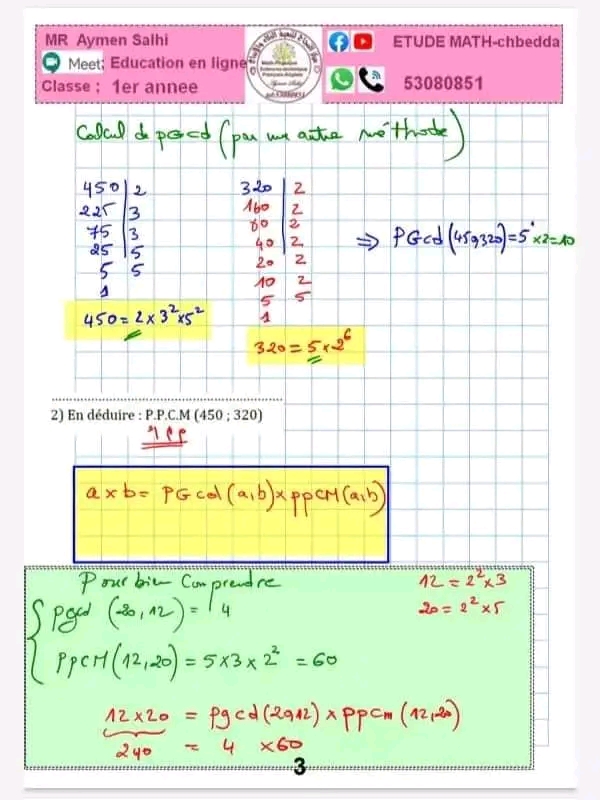 MR Aymen Salhi
Meet; Education en ligne
Classe : 1er annee
ETUDE MATH-chbedda
53080851
Calcul de pGcd (par une autre méthode)
450 | 2
225 | 3
75 | 3
25 | 5
5 | 5
1
450 = 2 x 3² x 5²
320 | 2
160 | 2
80 | 2
40 | 2
20 | 2
10 | 2
5 | 5
1
320 = 5 x 2⁶
⇒ PGcd (450,320) = 5 x 2 = 10
2) En déduire : P.P.C.M (450 ; 320)
a x b = PGcd (a,b) x ppCM (a,b)
Pour bien Comprendre
pgcd (20,12) = 4
PpCM (12,20) = 5 x 3 x 2² = 60
12 = 2² x 3
20 = 2² x 5
12 x 20 = pgcd (20,12) x ppcm (12,20)
240 = 4 x 60
3